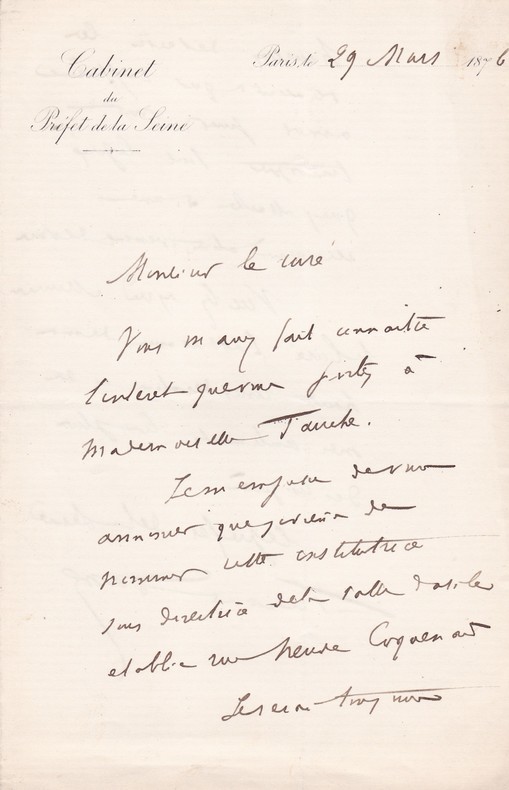 Cabinet
du
Préfet de la Seine
Paris, le 29 Mars 1876
Monsieur le curé
Vous m'avez fait connaitre
l'intérêt que vous portez à
Mademoiselle Tauche.
Je m'empresse de vous
annoncer que je viens de
nommer cette institutrice
sous directrice de la salle d'asile
établie rue Neuve Coquenard
Je serai toujours